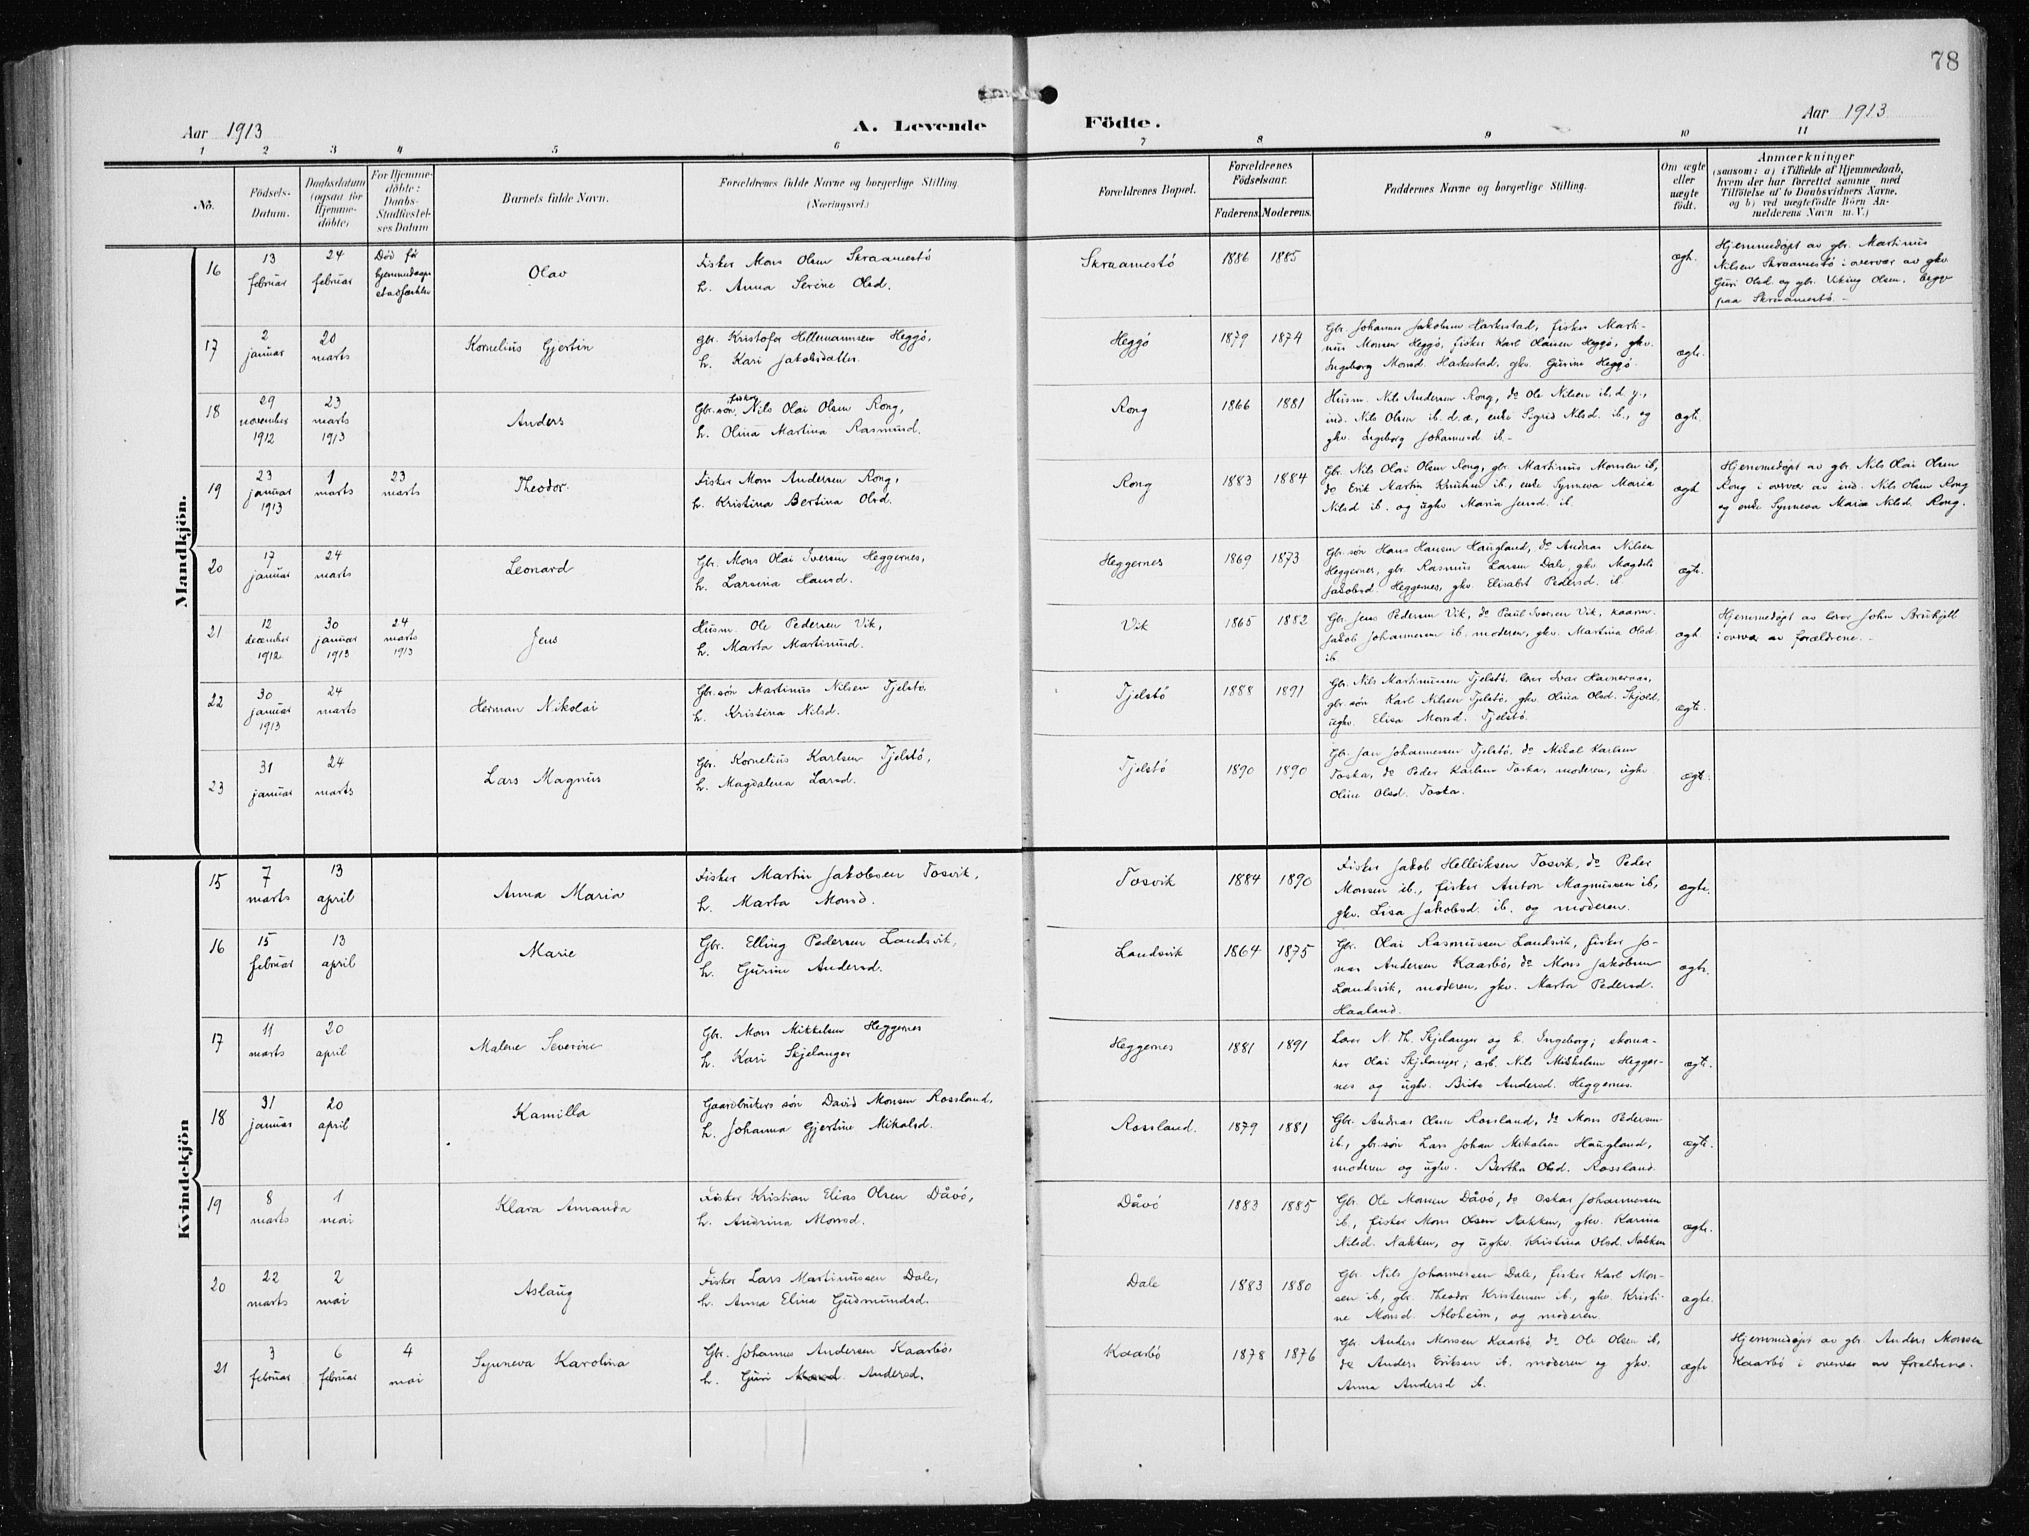 78
Aar 1913 A. Levende Födte. Aar 1913
1 2 3 4 5 6 7 8 9 10 11
No.
Födsels-
Datum.
Daabsdatum
(ogsaa for
Hjemme-
döbte)
For Hjemme-
döbte:
Daabs-
Stadfæstel-
ses Datum
Barnets fulde Navn.
Forældrenes fulde Navne og borgerlige Stilling
(Næringsvei.)
Forældrenes Bopæl.
Forældrenes
Födselsaar.
Faderens. Moderens.
Faddernes Navne og borgerlige Stilling.
Om ægte
eller
uægte
født.
Anmærkninger
(saasom: a) i Tilfælde af Hjemmedaab,
hvem der har forrettet samme med
Tilföielse af to Daabsvidners Navne,
og b) ved uægtefödte Börn An-
melderens Navn m.V.)
Mandkjön.
16
13
februar
24
februar
Död før
hjemmedaapen
stadfæstedes
Olav
Fisker Mons Olsen Skraamestö
h. Anna Serine Olsd.
Skraamestö
1886 1885
ægt.
Hjemmedöpt av gbr. Martinus
Nilsen Skraamestö i overvær av gkv.
Guri Olsd. og gbr. Viking Olsen, begge
paa Skraamestö.-
17
2
januar
20
marts
Kornelius Gjertin
gbr. Kristofer Hillemannsen Heggö,
h. Kari Jakobsdatter.
Heggö
1879 1874
Gbr. Johannes Jakobsen Harkestad, fisker Mart-
nus Monsen Heggö, fisker Karl Olaisen Heggö, gkv.
Ingeborg Monsd. Harkestad, gkv. Gurine Heggö.
ægte.
18
29
november
1912
23
marts
1913
Anders
Gbr.søn, fisker Nils Olai Olsen Rong,
h. Olina Martina Rasmusd.
Rong
1866 1881
Husm. Nils Andersen Rong, do Ole Nilsen ib. d. y.,
ind. Nils Olsen ib. d. æ., enke Sigrid Nilsd. ib., og
gkv. Ingeborg Johannesd. ib.-
ægt.
19
23
januar
1913
1
marts
23
marts
Theodor.
Fisker Mons Andersen Rong,
h. Kristina Bertina Olsd.
Rong
1883 1884
Gbr. Nils Olai Olsen Rong, gbr. Martinus Monsen ib,
do Erik Martin Knutsen ib., enke Synneva Maria
Nilsd ib. og ugkv Maria Jensd. ib.
ægt
Hjemmedöpt av gbr. Nils Olai Olsen
Rong i overvær av ind. Nils Olsen Rong
og enke Synneva Maria Nilsd. Rong.
20
17
januar
24
marts
Leonard
Gbr. Mons Olai Iversen Heggernes,
h. Larsina Hansd.
Heggernes
1869 1873
Gbr. søn Hans Hansen Haugland, do Andreas Nilsen
Heggernes, gbr. Rasmus Larsen Dale, gkv. Magdeli
Jakobsd. Heggernes, gkv. Elisabet Pedersd. ib.
ægte.
21
12
december
1912
30
januar
1913
24
marts
1913
Jens
Husm. Ole Pedersen Vik,
h. Marta Martinusd.
Vik
1865 1882
Gbr. Jens Pedersen Vik, do Paul Iversen Vik, kaarm.
Jakob Johannesen ib. moderen, gkv. Martina Olsd.
ib
ægt
Hjemmedöpt av lærer John
i overvær av forældrene. -
22
30
januar
1913
24
marts
Herman Nikolai
Gbr.søn Martinus Nilsen Tjelstö.
h. Kristina Nilsd.
Tjelstö
1888 1891
Gbr. Nils Martinussen Tjelstö, lærer Ivar
gbr. søn Karl Nilsen Tjelstö, gkv. Olina Olsd. Skjold,
ugkv. Elisa Monsd. Tjelstö.
ægte.
23
31
januar
24
marts
Lars Magnus
Gbr. Kornelius Karlsen Tjelstö,
h. Magdalena Larsd.
Tjelstö
1890 1890
Gbr. Jan Johannessen Tjelstö, do Mikal Karlsen
Toska, do Peder Karlsen Toska, moderen, ugkv.
Oline Olsd. Toska.
ægt.
Kvindekjön
15
7
marts
13
april
Anna Maria
Fisker Martin Jakobsen Tosvik,
h. Marta Monsd.
Tosvik
1884 1890
Fisker Jakob Helleiksen Tosvik, do Peder
Monsen ib., fisker Anton Magnussen ib,
gkv. Lisa Jakobsd. ib. og moderen.
ægte.
16
15
februar
13
april
Marie
Gbr. Elling Pedersen Landsvik,
h. Gurine Andersd.
Landsvik
1864 1875
Gbr. Olai Rasmussen Landsvik, fisker Jo-
nas Andersen Kaarbö, do Mons Jakobsen
Landsvik, moderen, gkv. Marta Pedersd.
Haaland.
ægte.
17
11
marts
20
april
Malene Severine
Gbr. Mons Mikkelsen Heggernes
h. Kari Skjelanger
Heggernes
1881 1891
Lærer N. Th. Skjelanger og h. Ingeborg; skoma-
ker Olai Skjelanger; arb. Nils Mikkelsen Hegger-
nes og ugkv. Brita Andersd. Heggernes.
ægt.
18
31
januar
20
april
Kamilla
Gaardbrukers søn David Monsen Rossland,
h. Johanna Gjertine Mikalsd.
Rossland.
1879 1881
Gbr. Andreas Olsen Rossland, do Mons Pedersen
ib., gbr. søn Lars Johan Mikalsen Haugland,
moderen og ugkv. Bertha Olsd. Rossland.
ægte.
19
8
marts
1
mai
Klara Amanda
Fisker Kristian Elias Olsen Dåvö,
h. Andrina Monsd.
Dåvö
1883 1885
Gbr Ole Monsen Dåvö, do Oskar Johannessen
ib., fisker Mons Olsen Nakken, gkv. Karina
Nilsd. Nakken, og ugkv. Kristina Olsd. Nakken
ægte.
20
22
marts
2
mai
Aslaug
Fisker Lars Martinussen Dale,
h. Anna Elina Gudmundsd.
Dale
1883 1880
Gbr. Nils Johannessen Dale, fisker Karl Mon-
sen ib, gbr. Theodor Kristensen ib., gkv. Kristi-
ne Monsd. Alvheim, og moderen.
ægte.
21
3
februar
6
februar
4
mai
Synneva Karolina
Gbr. Johannes Andersen Kaarbö,
h. Guri Monsd. Andersd.
Kaarbö
1878 1876
Gbr. Anders Monsen Kaarbö, do Ole Olsen ib,
do Anders Eriksen ib. moderen og gkv.
Anna Andersd ib.
ægte
Hjemmedöpt av gbr. Anders Monsen
Kaarbö i overvær av forældrene.